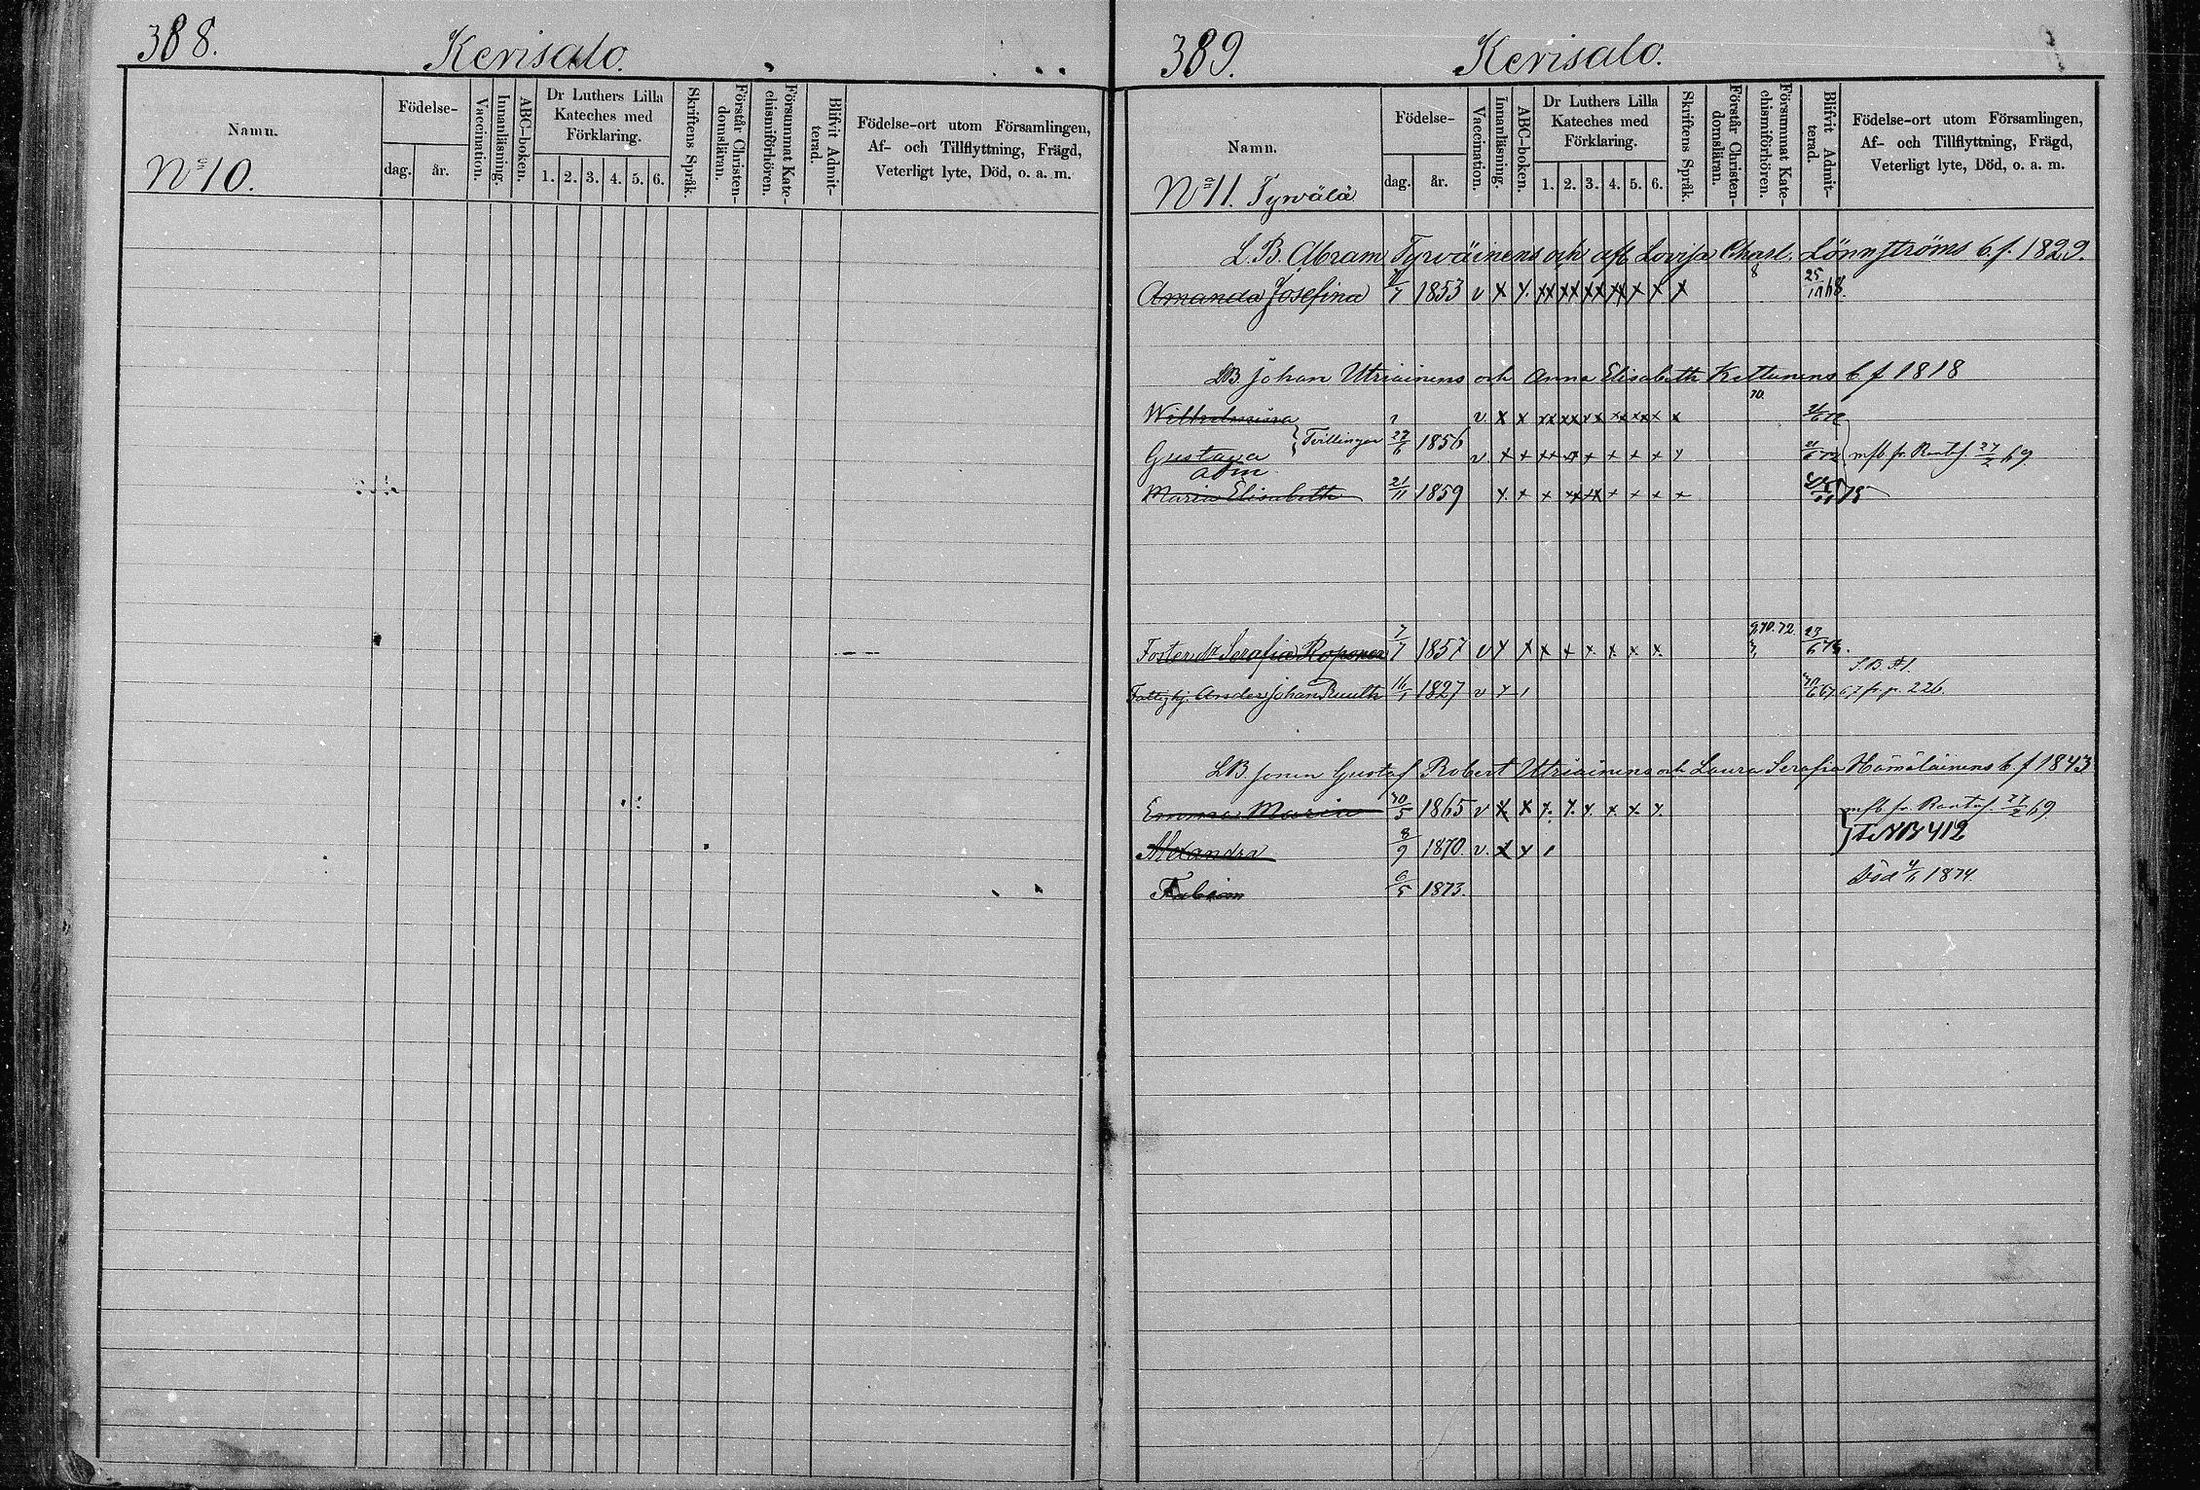 388.
Kerisalo.
Namn.
Födelse-
dag.
år.
Vaccination.
Innanläsning.
ABC-boken.
Dr Luthers Lilla
Kateches med
Förklaring.
1. 2. 3. 4. 5. 6.
Skriftens Språk.
Förstår Christen-
domsläran.
Försummat Kate-
chismiförhören.
Blifvit Admit-
terad.
Födelse-ort utom Församlingen,
Af- och Tillflyttning, Frägd,
Veterligt lyte, Död, o. a. m.
No 10.
389.
Kerisalo.
Namn.
Födelse-
dag.
år.
Vaccination.
Innanläsning.
ABC-boken.
Dr Luthers Lilla
Kateches med
Förklaring.
1. 2. 3. 4. 5. 6.
Skriftens Språk.
Förstår Christen-
domsläran.
Försummat Kate-
chismiförhören.
Blifvit Admit-
terad.
Födelse-ort utom Församlingen,
Af- och Tillflyttning, Frägd,
Veterligt lyte, Död, o. a. m.
No 11. Tyrvälä
L. B. Abram Tyrväinens och afl. Lovisa Charl. Lönnströms b. f. 1829.
Amanda Josefina 1853 v x x xx xx xx xx x x x 8 25/10 68.
LB Johan Utriainens och Anna Elisabeth Kettunens b f 1818
Wilhelmina v x x xx xx xx xx xx x x 70.
Gustava } Tvillingar 27/6 1856 v. x x xx x x x x x x mfb fr Rantas. 27/2 69
adm
Maria Elisabeth 21/11 1859 x x x xx xx x x x x 75
Foster dr Serafia Roponen 7/7 1857 v x x x x x x x x 9, 70. 72. 23/6 73.
L. B. A1
Fattighj. Anders Johan Ruuth 16/1 1827 v x 1 fr. p. 226.
LB sonen Gustaf Robert Utriainens och Laura Serafia Hämäläinens b. f 1843
Emma Maria 30/5 1865 v x x x. x. x. x. x. x. mfb fr Rantas. 27/2 69
Alexandra 8/9 1870. v. x x 1 NB 412
Fabian 6/5 1873. Död 4/6 1874.